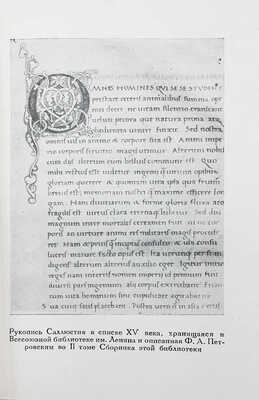 OMNIS HOMINES QUI SESE STUDENT
prestare ceteris animalibus summa opi
niti decet ne uitam silentio transeant
ueluti pecora que natura prona atq;
obedientia uentri finxit. Sed nostra
omnis uis in animo & corpore sita est. Animi impe
rio corporis seruitio magis utimur. Alterum nobis
cum diis alterum cum beluis commune est. Quo
mihi rectius uidetur ingenii quam uirium opibus
gloriam querere & quoniam uita ipsa qua fruimur
breuis est memoriam nostri quam maxime efficere lon
gam. Nam diuitiarum & forme gloria fluxa atq;
fragilis est uirtus clara eternaq; habetur. Sed diu
magnum inter mortales certamen fuit ui ne corpo
ris an uirtute animi res militaris magis procede
ret. Nam & prius quam incipias consulto & ubi consu
lueris mature facto opus est. Ita utrumq; per se
indigens alterum alterius auxilio eget. Igitur initio
reges nam in terris nomen imperii id primum fuit
diuersi pars ingenium alii corpus exercebant. Etiam
tum uita hominum sine cupiditate agitabatur
Sua cuiq; satis placebant.
Рукопись Саллюстия в списке XV века, хранящаяся в
Всесоюзной библиотеке им. Ленина и описанная Ф. А. Пет-
ровским во II томе Сборника этой библиотеки